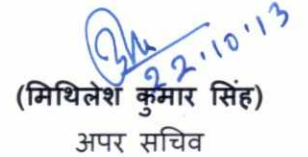 22.10.13
(मिथिलेश कुमार सिंह)
अपर सचिव